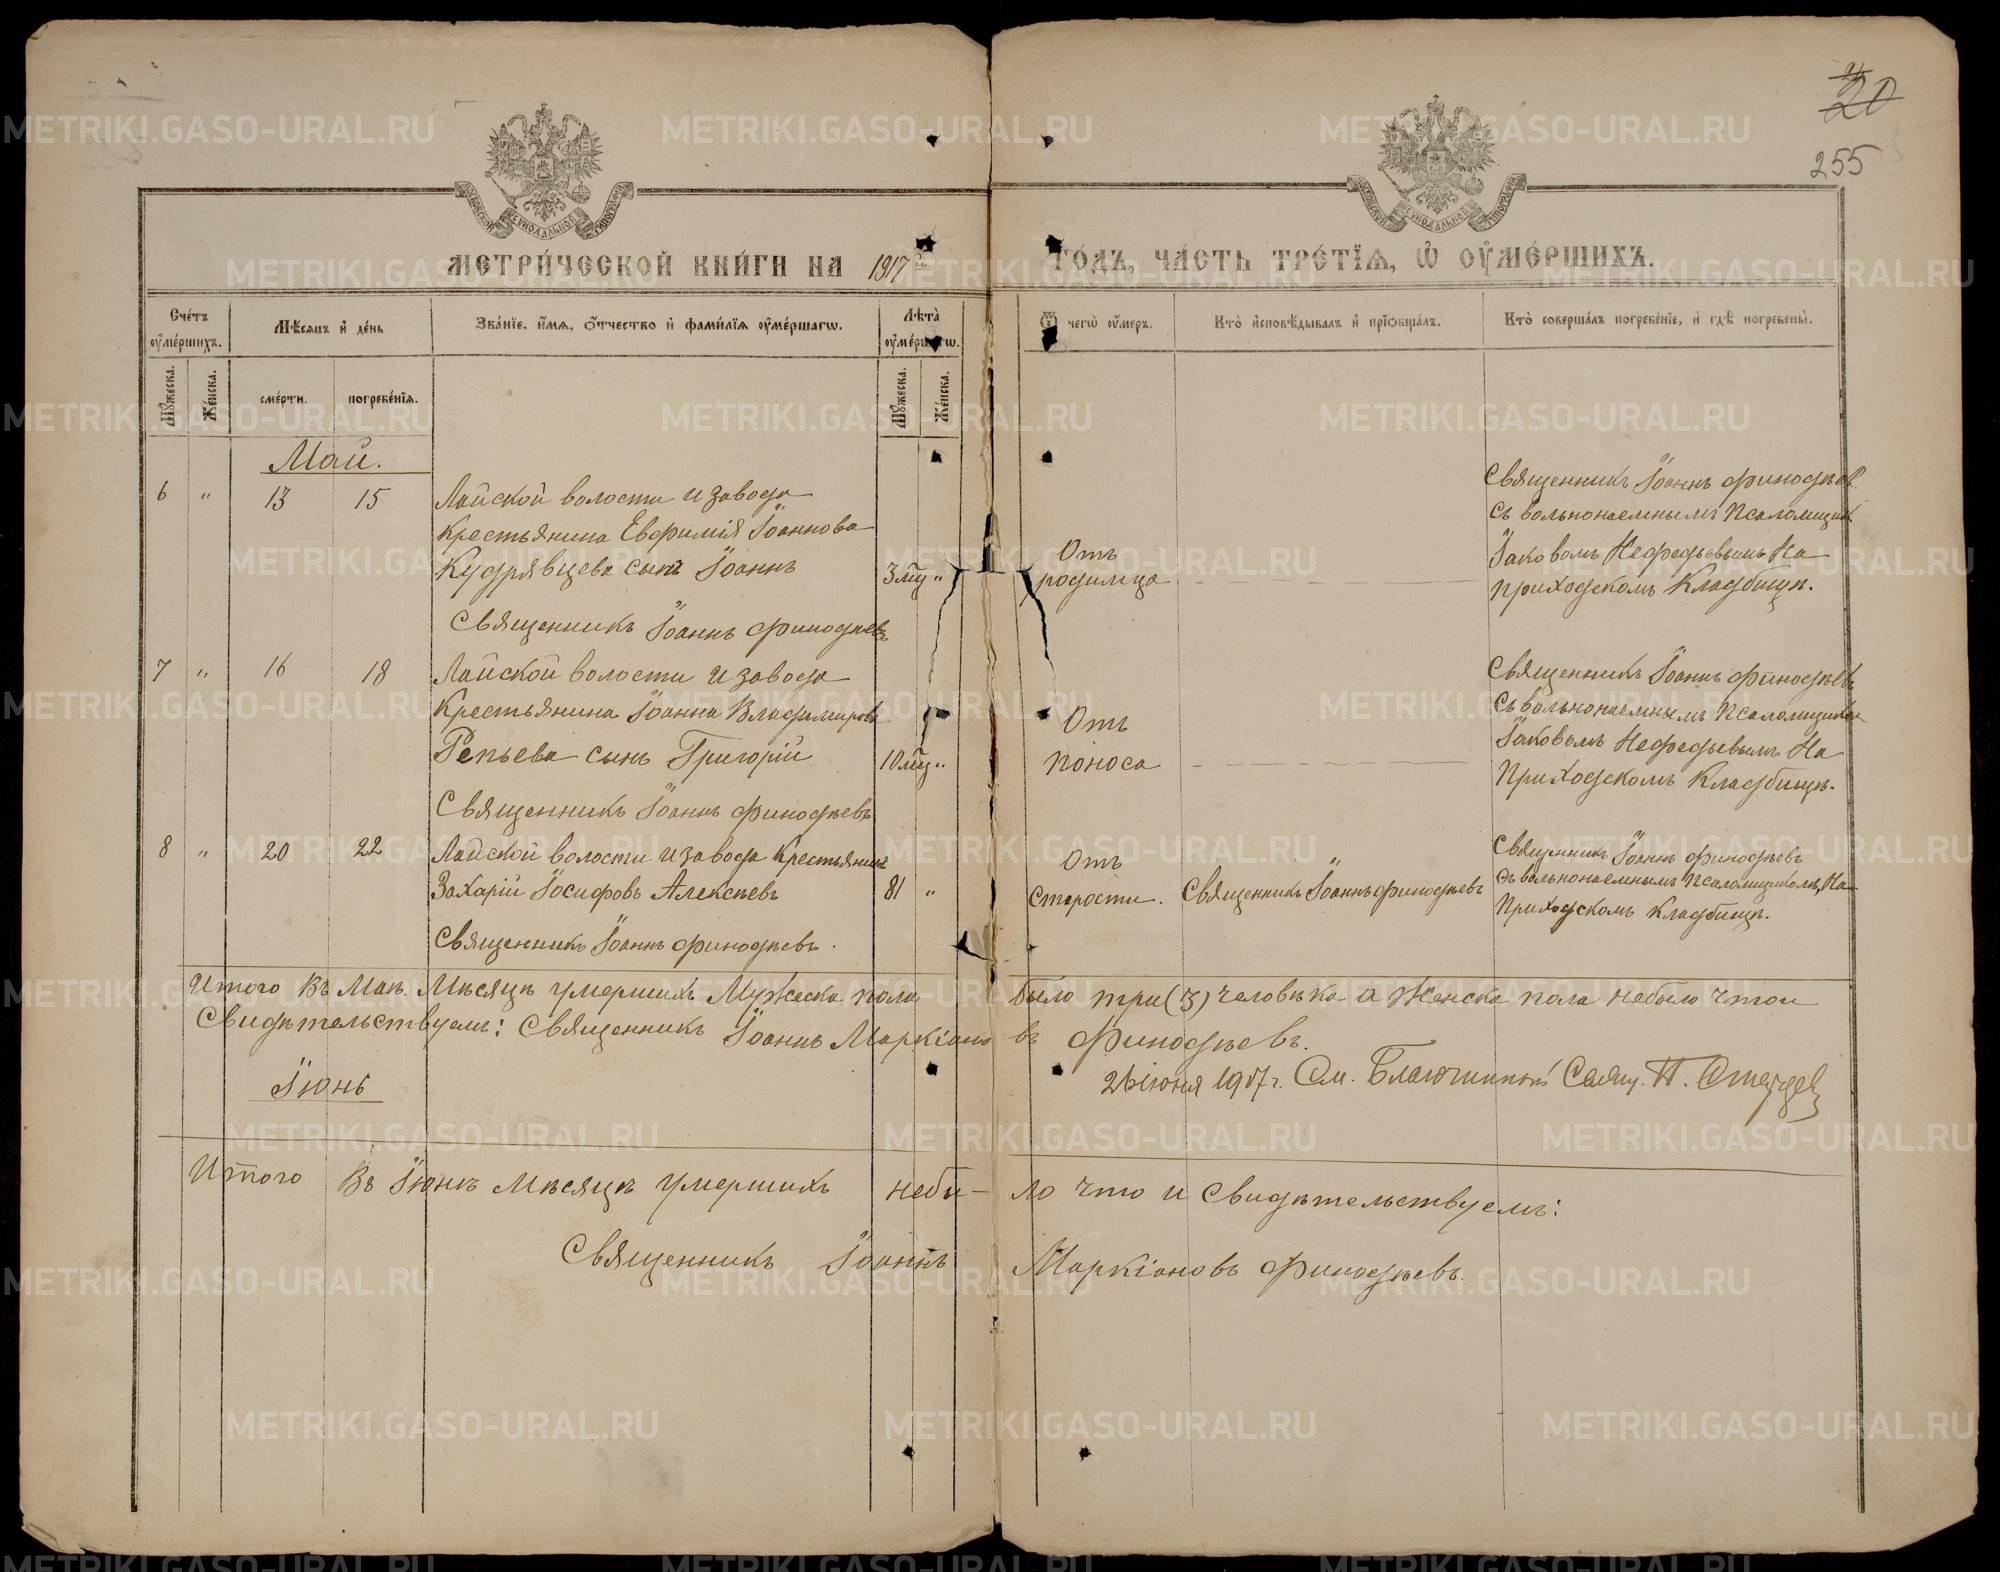 20
255
МЕТРИ́ЧЕСКОЙ КНИ́ГИ НА 1917
ГО́ДЪ, ЧА́СТЬ ТРЕ́ТЇѦ, Ѡ҆ ОУ҆МЕ́РШИХЪ.
Сче́тъ оу҆ме́ршихъ.
Мѣ́сѧцъ и҆ де́нь
Зва́нїе, и҆́мѧ, ѻ҆́тчество и҆ фами́лїѧ оу҆ме́ршагѡ.
Лѣ́та оу҆ме́ршагѡ.
Ѿ чегѡ̀ оу҆́меръ.
Кто̀ и҆сповѣ́дывалъ и҆ прїѡбща́лъ.
Кто̀ соверша́лъ погребе́нїе, и҆ гдѣ̀ погребены̀.
Мꙋ́жеска.
Же́нска.
сме́рти.
погребе́нїѧ.
Мꙋ́жеска.
Же́нска.
Май.
6 " 13 15 Лайской волости и завода
Крестьянина Евфимія Іоаннова
Кудрявцева сынъ Іоаннъ 3 мц "
Священникъ Іоаннъ Финодѣевъ
Отъ
родимца
Священникъ Іоаннъ Финодѣев.
Съ вольнонаемнымъ псаломщик
Іаковомъ Нефедьевымъ На
приходскомъ Кладбищѣ.
7 " 16 18 Лайской волости и завода
Крестьянина Іоанна Владимірова
Репьева сынъ Григорій 10 мц "
Священникъ Іоаннъ Финодѣевъ
Отъ
поноса
Священникъ Іоаннъ Финодѣевъ
Съ вольнонаемнымъ Псаломщиком
Іаковомъ Нефедьевымъ На
Приходскомъ Кладбищѣ.
8 " 20 22 Лайской волости и завода Крестьянинъ
Захарій Іосифовъ Алексѣевъ 81 "
Священникъ Іоаннъ Финодѣевъ.
Отъ
старости.
Священникъ Іоаннъ Финодѣевъ
Священникъ Іоаннъ Финодѣевъ
съ вольнонаемнымъ Псаломщикомъ, На
Приходскомъ Кладбищѣ.
Итого Въ Маѣ. Мѣсяцѣ умершихъ Мужеска пола было три (3) человѣка а Женска пола небыло что и
Свидѣтельствуемъ: Священникъ Іоаннъ Маркіановъ Финодѣевъ.
Іюнь
26 іюня 1917 г. См. Благочинный Свящ. П.
Итого Въ Іюнѣ Мѣсяцѣ умершихъ небы- ло что и Свидѣтельствуемъ:
Священникъ Іоаннъ Маркіановъ Финодѣевъ.
METRIKI.GASO-URAL.RU